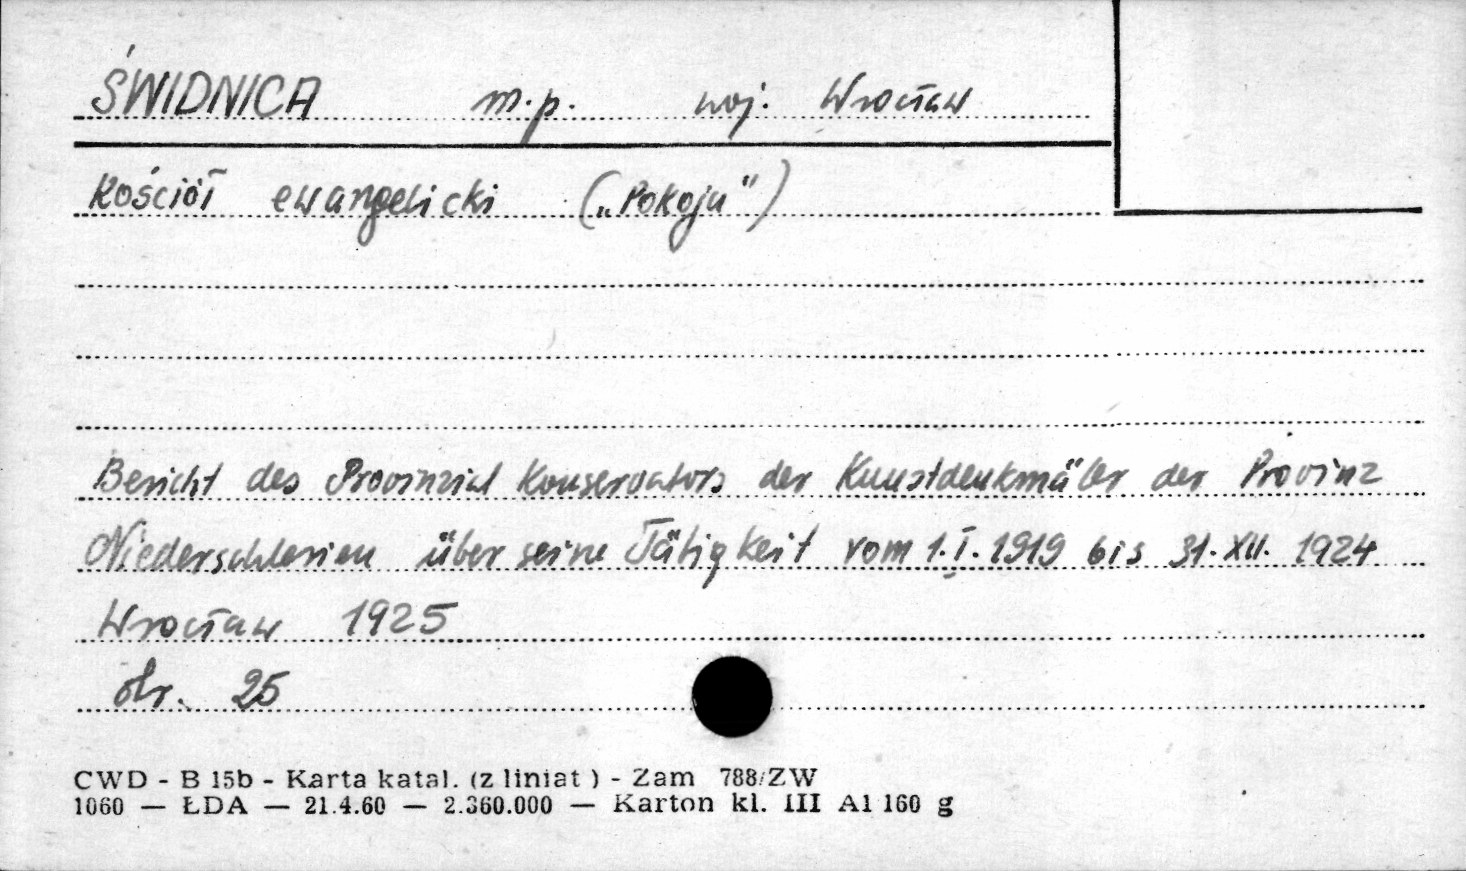 ŚWIDNICA m.p. woj. Wrocław
Kościół ewangelicki („Pokoju")
Bericht des Provinzial Konservators der Kunstdenkmäler der Provinz
Niederschlesien über seine Tätigkeit vom 1.I.1919 bis 31.XII.1924
Wrocław 1925
str. 25
CWD - B 15b - Karta katal. (z liniat ) - Zam 788/ZW
1060 — ŁDA — 21.4.60 — 2.360.000 — Karton kl. III A1 160 g